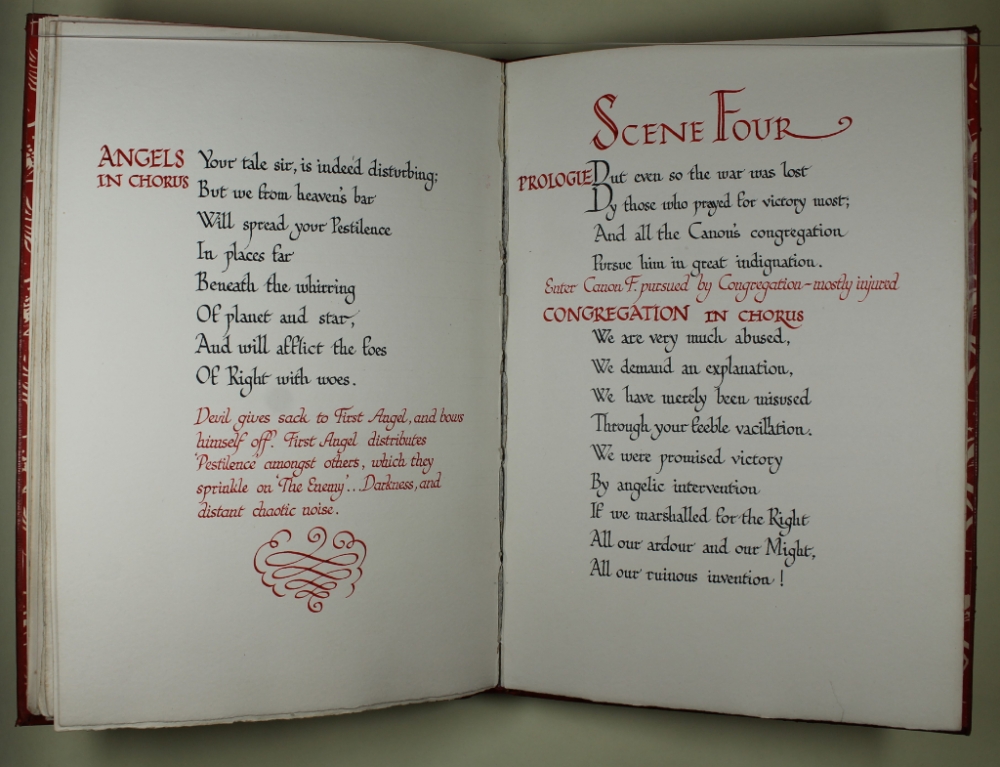 ANGELS
IN CHORUS
Your tale sir, is indeed disturbing;
But we from heaven's bar
Will spread your Pestilence
In places far
Beneath the whirring
Of planet and star,
And will afflict the foes
Of Right with woes.
Devil gives sack to First Angel, and bows
himself off. First Angel distributes
'Pestilence' amongst others, which they
sprinkle on 'The Enemy'.. Darkness, and
distant chaotic noise.
SCENE FOUR
PROLOGIE
But even so the war was lost
By those who prayed for victory most;
And all the Canon's congregation
Pursue him in great indignation.
Enter Canon F. pursued by Congregation - mostly injured
CONGREGATION IN CHORUS
We are very much abused,
We demand an explanation,
We have merely been misused
Through your feeble vacillation.
We were promised victory
By angelic intervention
If we marshalled for the Right
All our ardour and our Might,
All our ruinous invention!